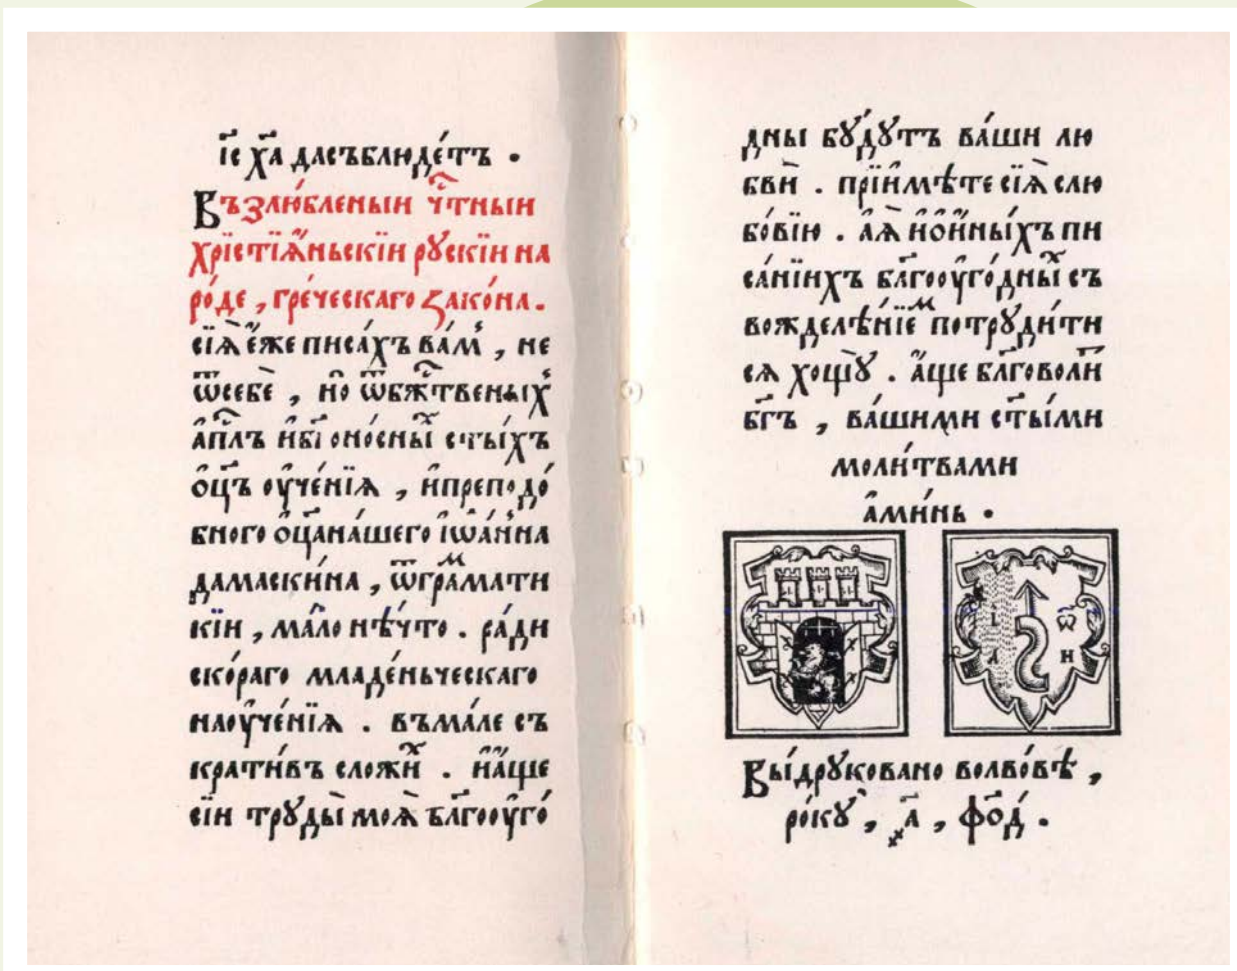 І҃с х҃а дасъблюде́тъ .
Възлю́бленыи чⷭ҇тныи
хрїстїѧ́ньскїи рꙋскїи на
ро́де , гре́ческаго ꙁако́на .
сїѧ̀ е҆́же писа́хъ ва́мъ , не
ѿсебѐ , но̀ ѿбжⷭ҇твеныⷯ
а҆пⷭ҇лъ и҆бг҃оно́сныⷯ ст҃ы́хъ
о҆ц҃ъ ᲂу҆че́нїѧ , и҆преподо́
бного о҆ц҃ана́шего і҆ѡа́нна
дамаски́на , ѿгра́маⷨти
кїи , ма́ло нѣ́что . ра́ди
ско́раго младе́ньческаго
наᲂу҆че́нїѧ . въма́ле съ
крати́въ сложиⷯ . и҆а́ще
сїи трꙋды̀ моѧ̀ бл҃гоᲂу҆го́
дны бꙋ́дꙋтъ ва́ши лю
бвѝ . прїи҆мѣ́те сїѧ̀ слю
бо́вїю . а҆ѧ̀ и҆ои҆́ны́хъ пи
са́нїихъ бл҃гоᲂу҆го́дныⷯ съ
вожделѣ́нїеⷨ потрꙋди́ти
сѧ хощꙋ̀ . а҆́ще бл҃говоли́т
бг҃ъ , ва́шими ст҃ы́ми
моли́твами
а҆ми́нь .
І ѿ
Л Н
Вы́дрꙋковано волво́вѣ ,
ро́кꙋ , ҂а҃ , фо҃д .